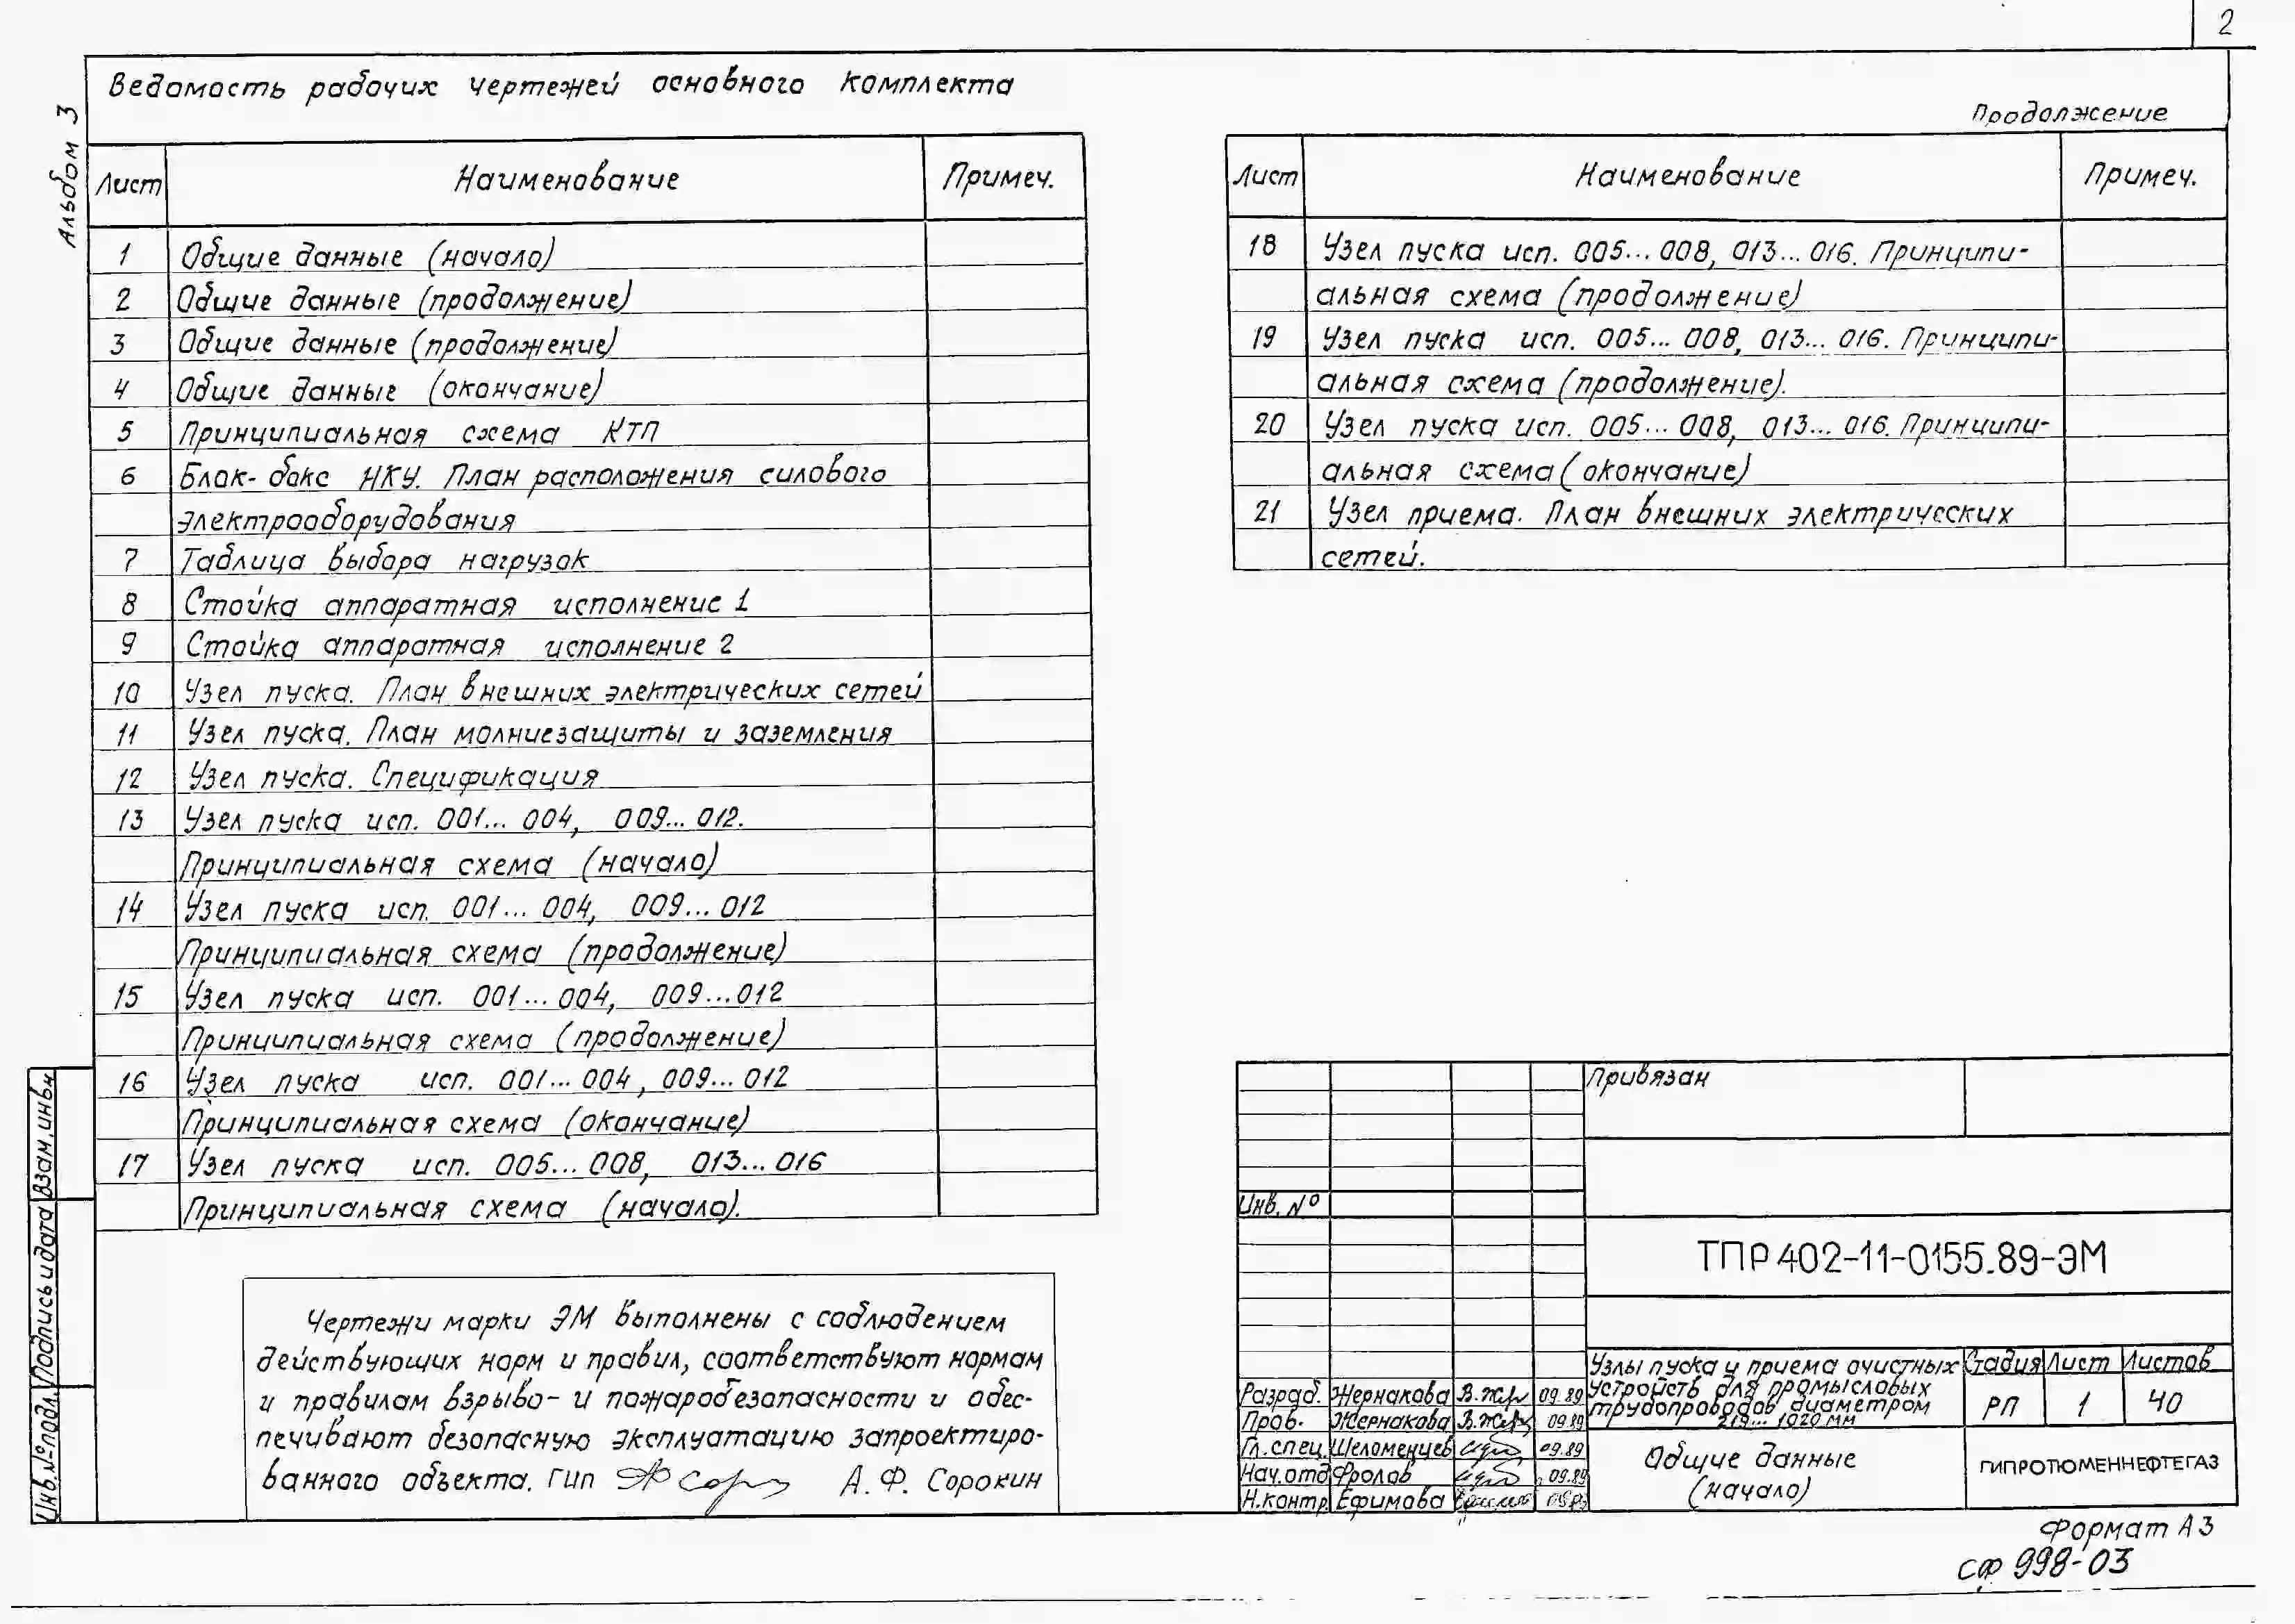 2
Альбом 3
Ведомость рабочих чертежей основного комплекта
Лист Наименование Примеч.
1 Общие данные (начало)
2 Общие данные (продолжение)
3 Общие данные (продолжение)
4 Общие данные (окончание)
5 Принципиальная схема КТП
6 Блок-бокс НКУ. План расположения силового
электрооборудования
7 Таблица выбора нагрузок
8 Стойка аппаратная исполнение 1
9 Стойка аппаратная исполнение 2
10 Узел пуска. План внешних электрических сетей
11 Узел пуска. План молниезащиты и заземления
12 Узел пуска. Спецификация
13 Узел пуска исп. 001... 004, 009... 012.
Принципиальная схема (начало)
14 Узел пуска исп. 001... 004, 009... 012
Принципиальная схема (продолжение)
15 Узел пуска исп. 001... 004, 009...012
Принципиальная схема (продолжение)
16 Узел пуска исп. 001... 004, 009... 012
Принципиальная схема (окончание)
17 Узел пуска исп. 005... 008, 013... 016
Принципиальная схема (начало).
Продолжение
Лист Наименование Примеч.
18 Узел пуска исп. 005... 008, 013... 016. Принципи-
альная схема (продолжение)
19 Узел пуска исп. 005... 008, 013... 016. Принципи-
альная схема (продолжение).
20 Узел пуска исп. 005... 008, 013... 016. Принципи-
альная схема (окончание)
21 Узел приема. План внешних электрических
сетей.
Чертежи марки ЭМ выполнены с соблюдением
действующих норм и правил, соответствуют нормам
и правилам взрыво- и пожаробезопасности и обес-
печивают безопасную эксплуатацию запроектиро-
ванного объекта. ГИП А. Ф. Сорокин
Взам. инв.
Подпись и дата
Инв. № подл.
Привязан
Инв. №
ТПР 402-11-0155.89-ЭМ
Узлы пуска и приема очистных
устройств для промысловых
трудопроводов диаметром
219... 1020 мм
Стадия Лист Листов
РП 1 40
Разраб. Жернакова 09.89
Пров. Жернакова 09.89
Гл. спец. Шеломенцев 09.89
Нач. отд Фролов 09.89
Н. контр. Ефимова
Общие данные
(начало)
ГИПРОТЮМЕННЕФТЕГАЗ
Формат А3
СФ 998-03